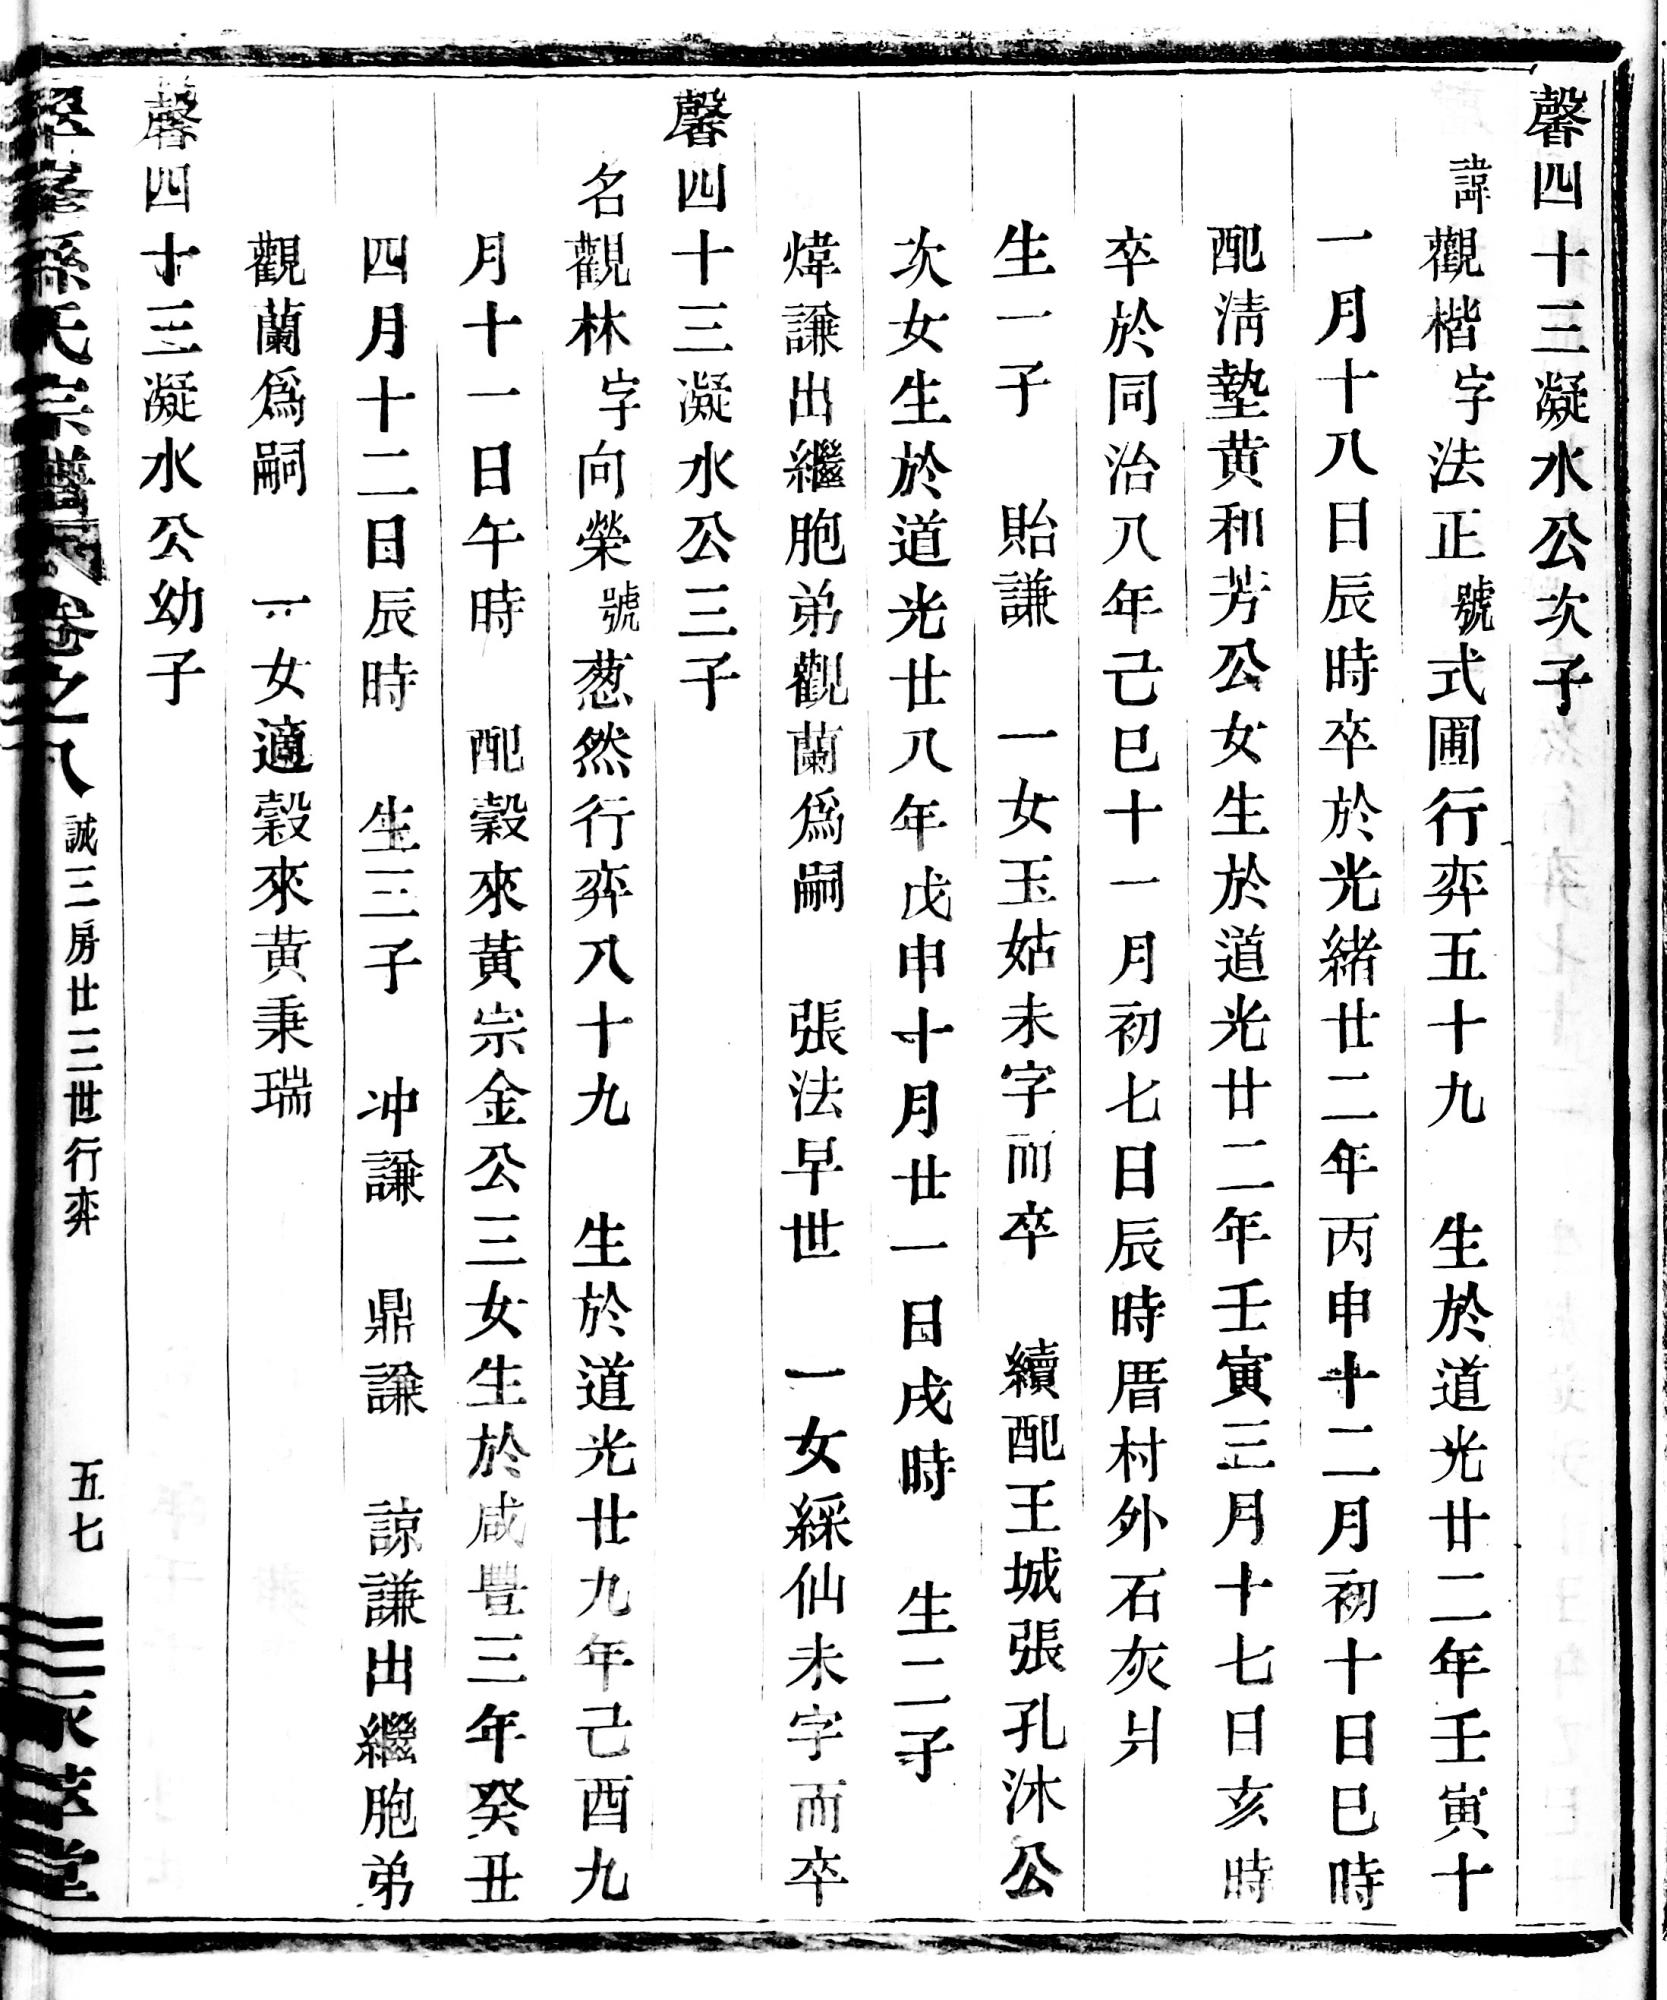 馨四十三凝水公次子
諱觀楷字法正號式圃行弈五十九　生於道光廿二年壬寅十
一月十八日辰時卒於光緒廿二年丙申十二月初十日巳時
配淸塾黄和芳公女生於道光廿二年壬寅三月十七日亥時
卒於同治八年己巳十一月初七日辰時厝村外石灰爿
生一子　貽謙　一女玉姑未字而卒　續配王城張孔沐公
次女生於道光廿八年戊申十月廿一日戌時　生二子
煒謙出繼胞弟觀蘭爲嗣　張法早世　一女綵仙未字而卒
馨四十三凝水公三子
名觀林字向榮號葱然行弈八十九　生於道光廿九年己酉九
月十一日午時　配穀來黃宗金公三女生於咸豐三年癸丑
四月十二日辰時　生三子　冲謙　鼎謙　諒謙出繼胞弟
觀蘭爲嗣　一女適穀來黃秉瑞
馨四十三凝水公幼子
孫氏宗譜　卷之八　誠三房廿三世行弈　五七　萃堂